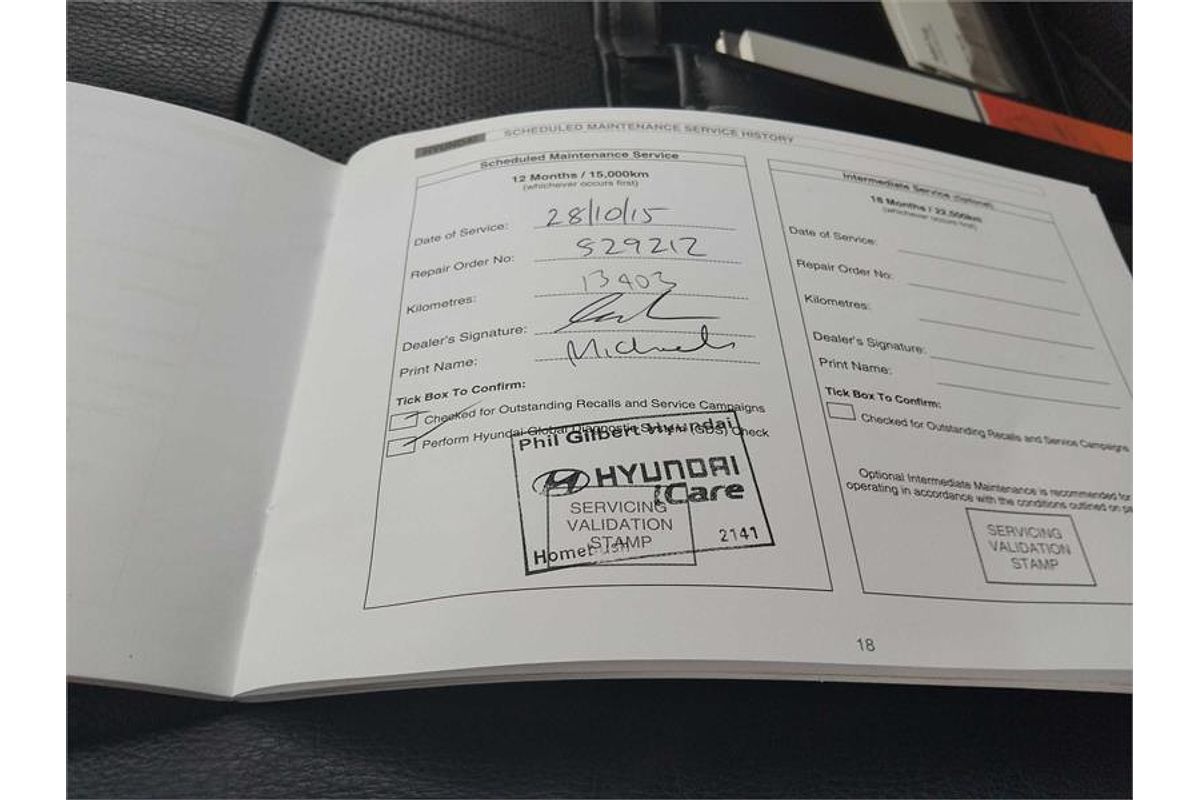 HYUNDAI SCHEDULED MAINTENANCE SERVICE HISTORY
Scheduled Maintenance Service
12 Months / 15,000km
(whichever occurs first)
Date of Service: 28/10/15
Repair Order No: 829212
Kilometres: 13403
Dealer's Signature:
Print Name:
Tick Box To Confirm:
Checked for Outstanding Recalls and Service Campaigns
Perform Hyundai Global Diagnostic System (GDS) Check
Phil Gilbert Hyundai
HYUNDAI
iCare
SERVICING
VALIDATION
STAMP
Homebush 2141
Intermediate Service (Optional)
18 Months / 22,500km
(whichever occurs first)
Date of Service:
Repair Order No:
Kilometres:
Dealer's Signature:
Print Name:
Tick Box To Confirm:
Checked for Outstanding Recalls and Service Campaigns
Optional Intermediate Maintenance is recommended for
operating in accordance with the conditions outlined on pa
SERVICING
VALIDATION
STAMP
18